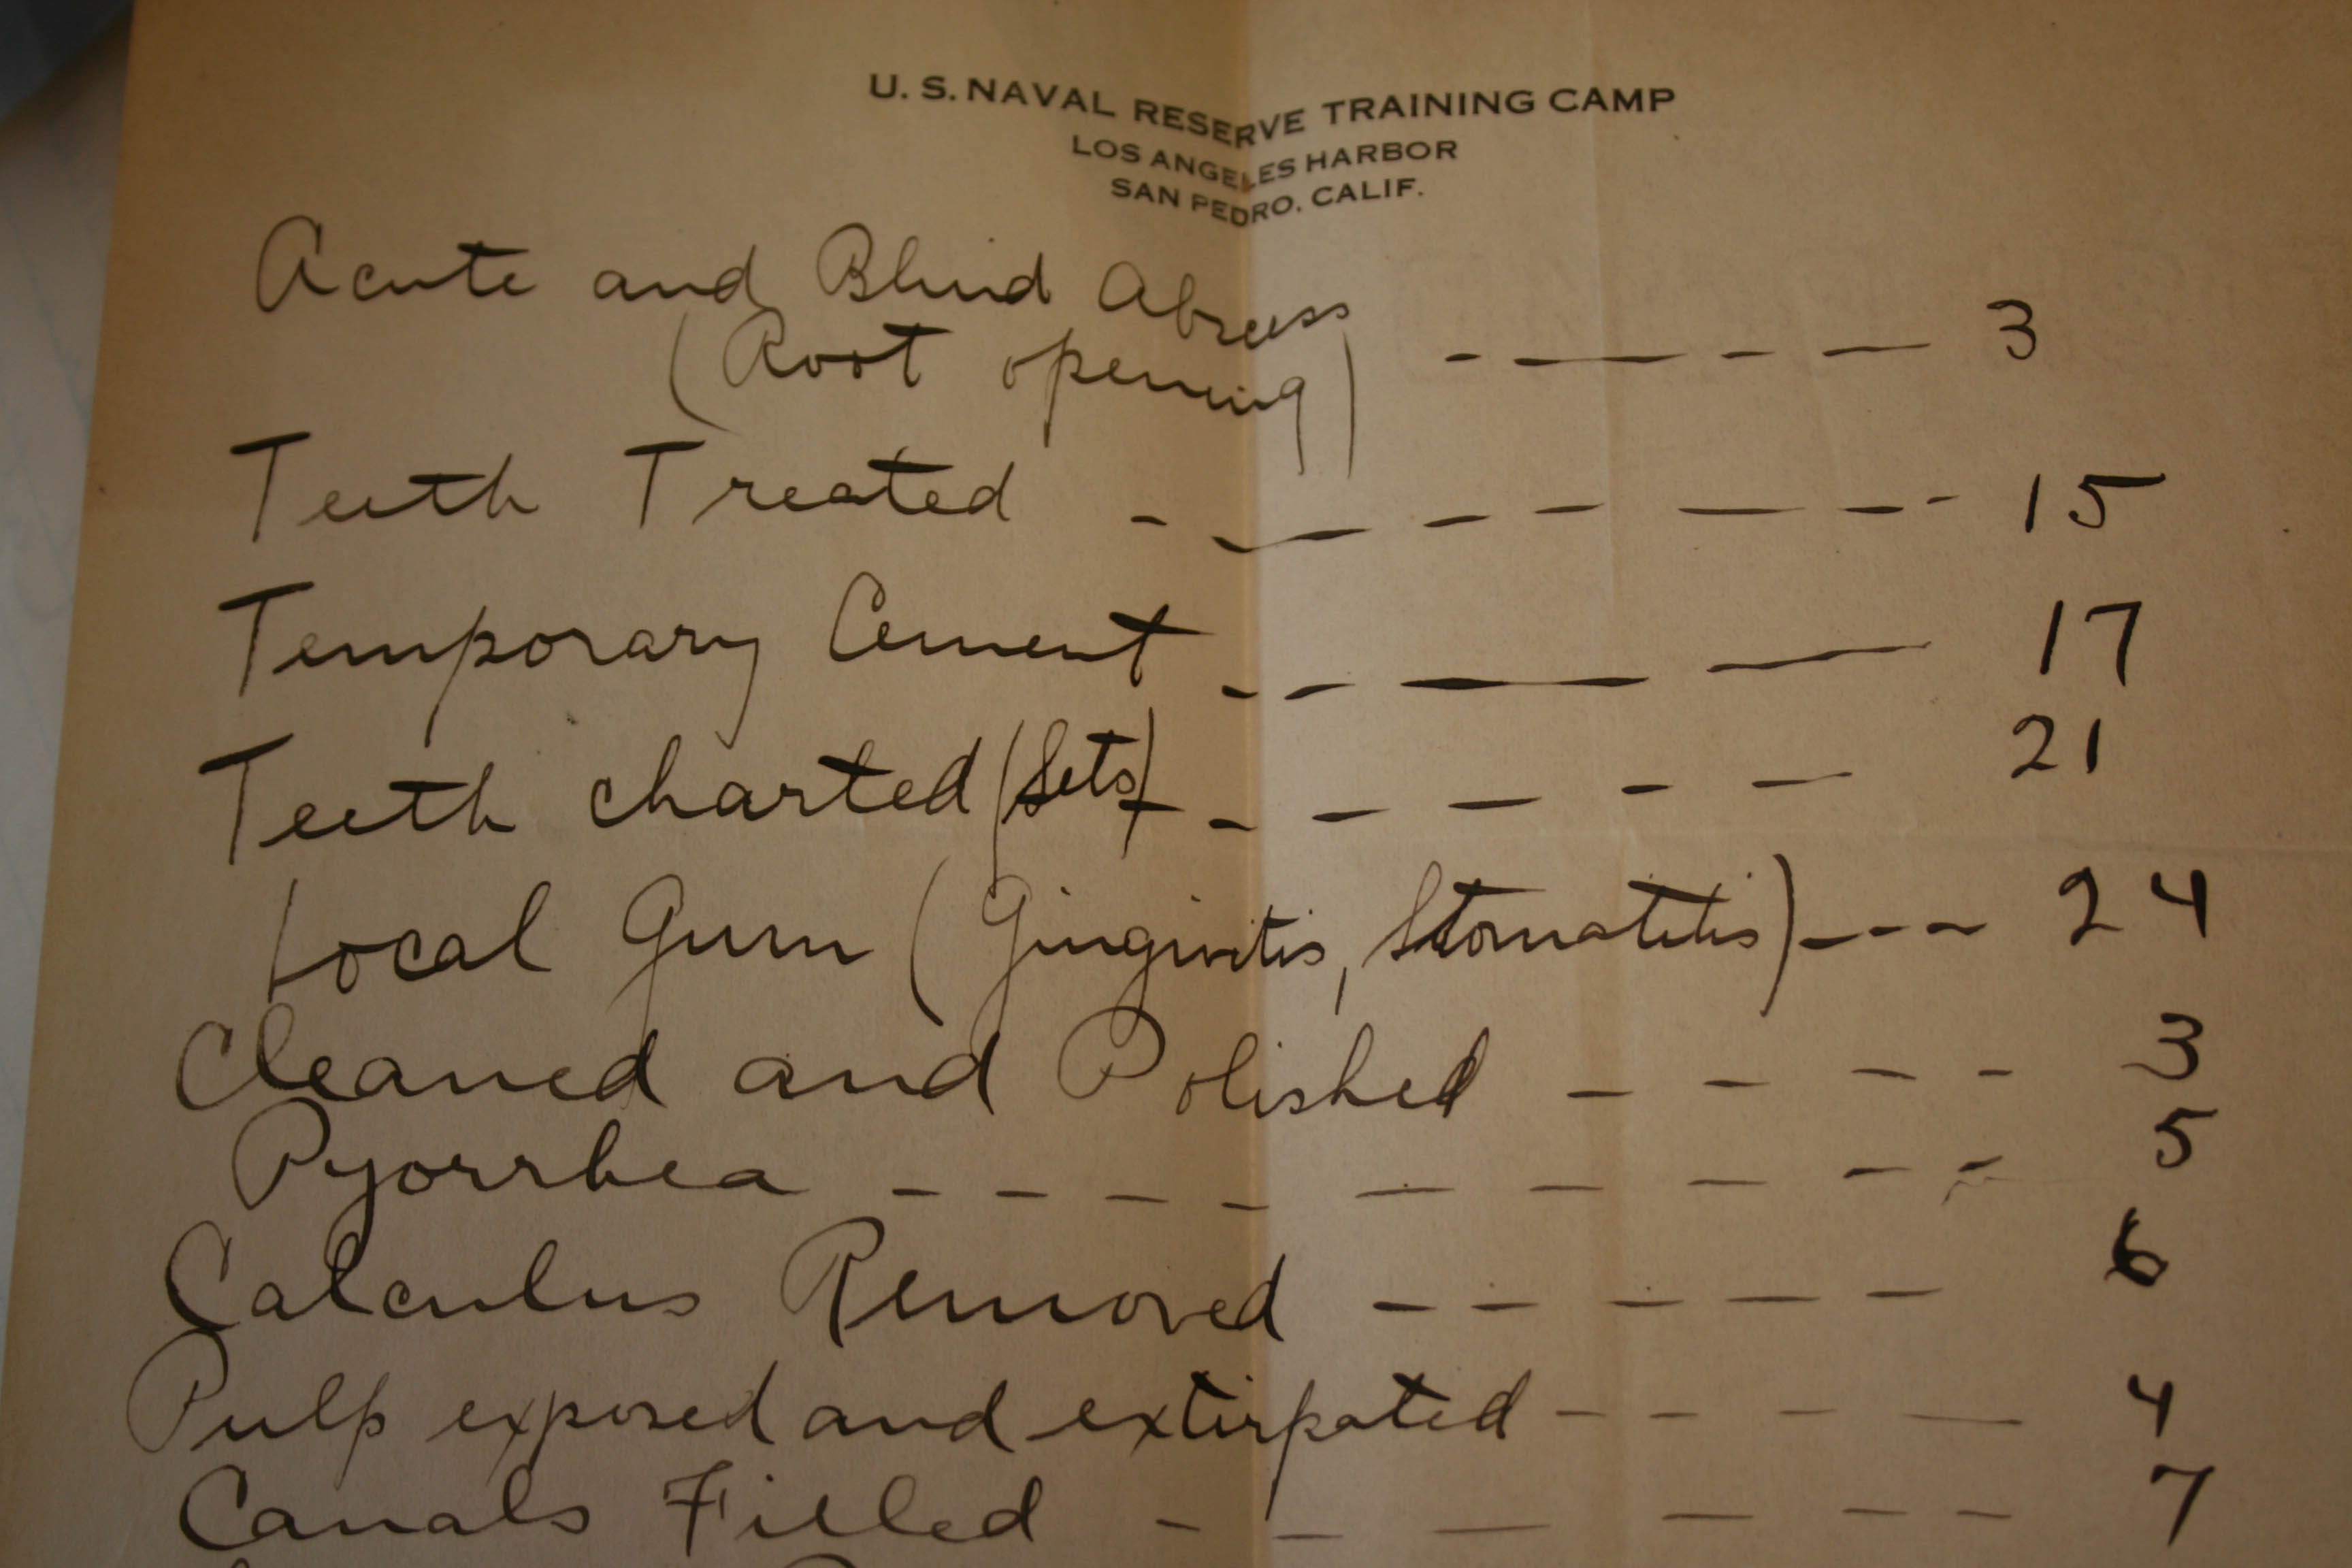 U. S. NAVAL RESERVE TRAINING CAMP
LOS ANGELES HARBOR
SAN PEDRO, CALIF.
Acute and Blind Abscess
(Root opening) - - - - - 3
Teeth Treated - - - - - - - 15
Temporary Cement - - - - 17
Teeth charted (Sets) - - - - - - 21
Local Gum (Gingivitis, Stomatitis) - - - 24
Cleaned and Polished - - - - 3
Pyorrhea - - - - - - - - - 5
Calculus Removed - - - - - 6
Pulp exposed and extirpated - - - - 4
Canals Filled - - - - - - 7